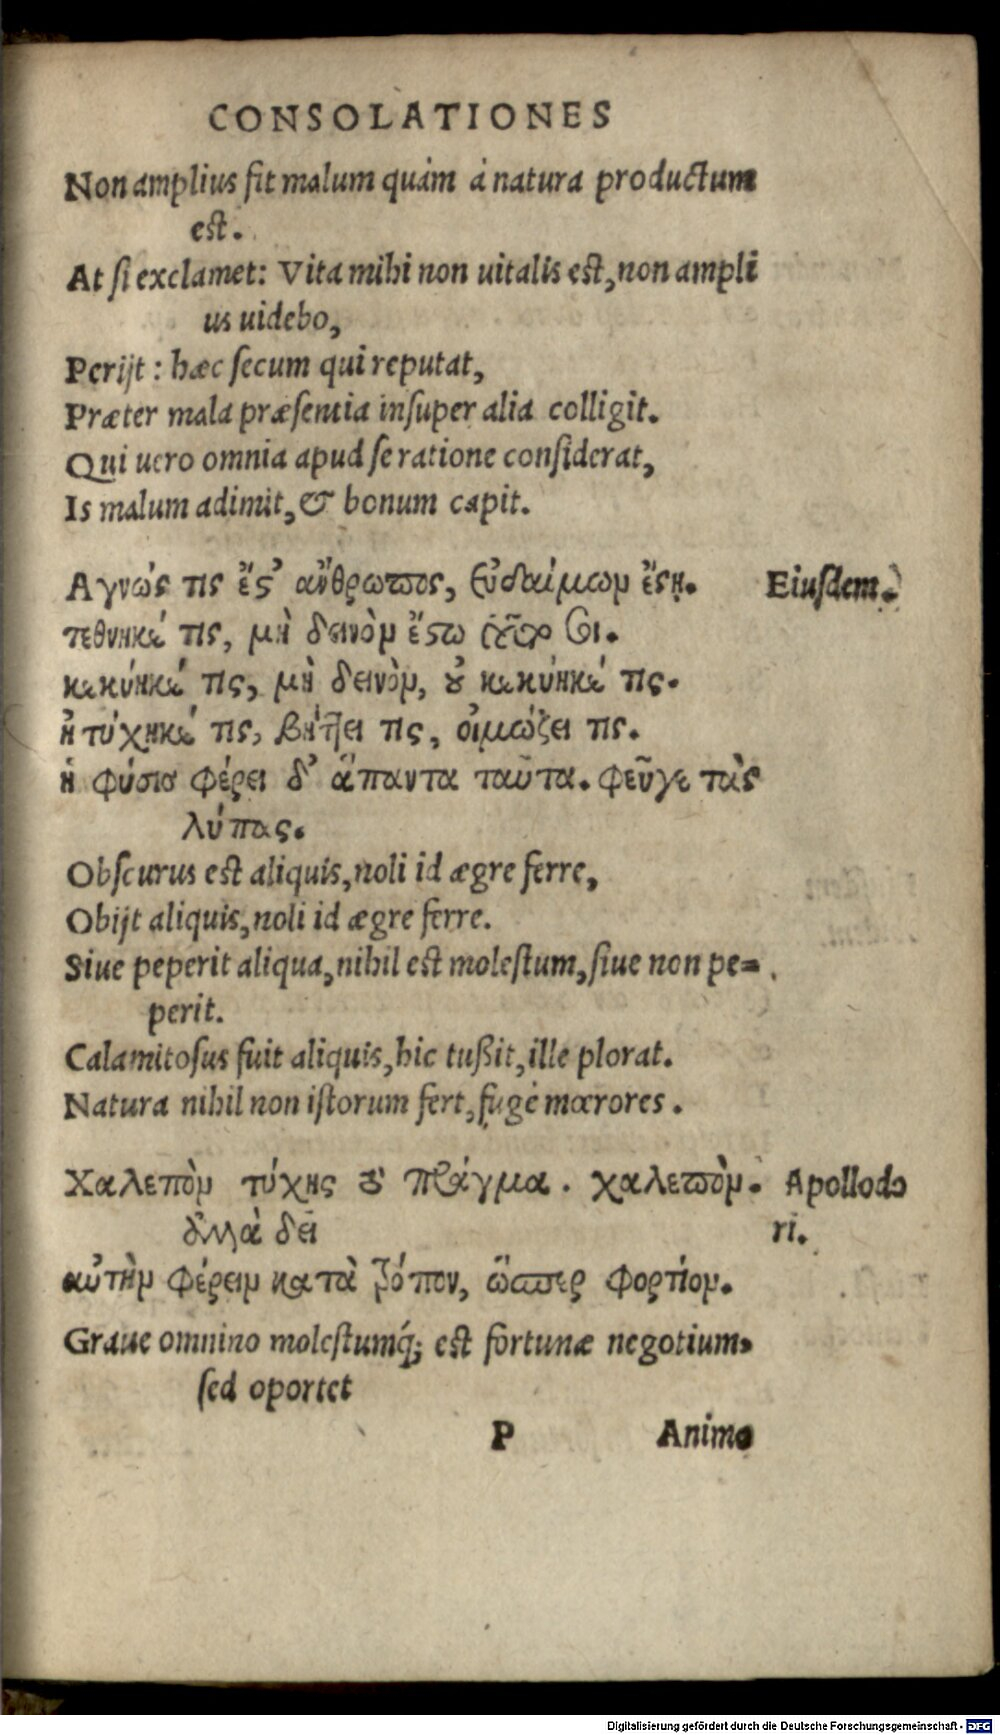 CONSOLATIONES
Non amplius fit malum quàm à natura productum
est.
At si exclamet: Vita mihi non uitalis est, non ampli
us uidebo,
Perijt: hæc secum qui reputat,
Præter mala præsentia insuper alia colligit.
Qui uero omnia apud se ratione considerat,
Is malum adimit, & bonum capit.
Αγνώς τις ἔς᾽ ἄνθρωπος, εὐδαίμων Eiusdem.
τεθνηκέ τις, μὴ δεινὸν ἔστω
κεκύηκέ τις, μὴ δεινὸν, οὐ κεκύηκέ τις.
ἠτύχηκέ τις, βήττει τις, οἰμώζει τις.
ἡ φύσις φέρει δ᾽ ἅπαντα ταῦτα. φεῦγε τὰς
λύπας.
Obscurus est aliquis, noli id ægre ferre,
Obijt aliquis, noli id ægre ferre.
Siue peperit aliqua, nihil est molestum, siue non pe=
perit.
Calamitosus fuit aliquis, hic tußit, ille plorat.
Natura nihil non istorum fert, fuge mœrores.
Χαλεπὸν τύχης πρᾶγμα. χαλεπὸν. Apollodo
ἀλλὰ δεῖ ri.
αὐτὴν φέρειν κατὰ τρόπον, ὥσπερ φορτίον.
Graue omnino molestumq́; est fortunæ negotium,
sed oportet
P Animo
Digitalisierung gefördert durch die Deutsche Forschungsgemeinschaft - DFG